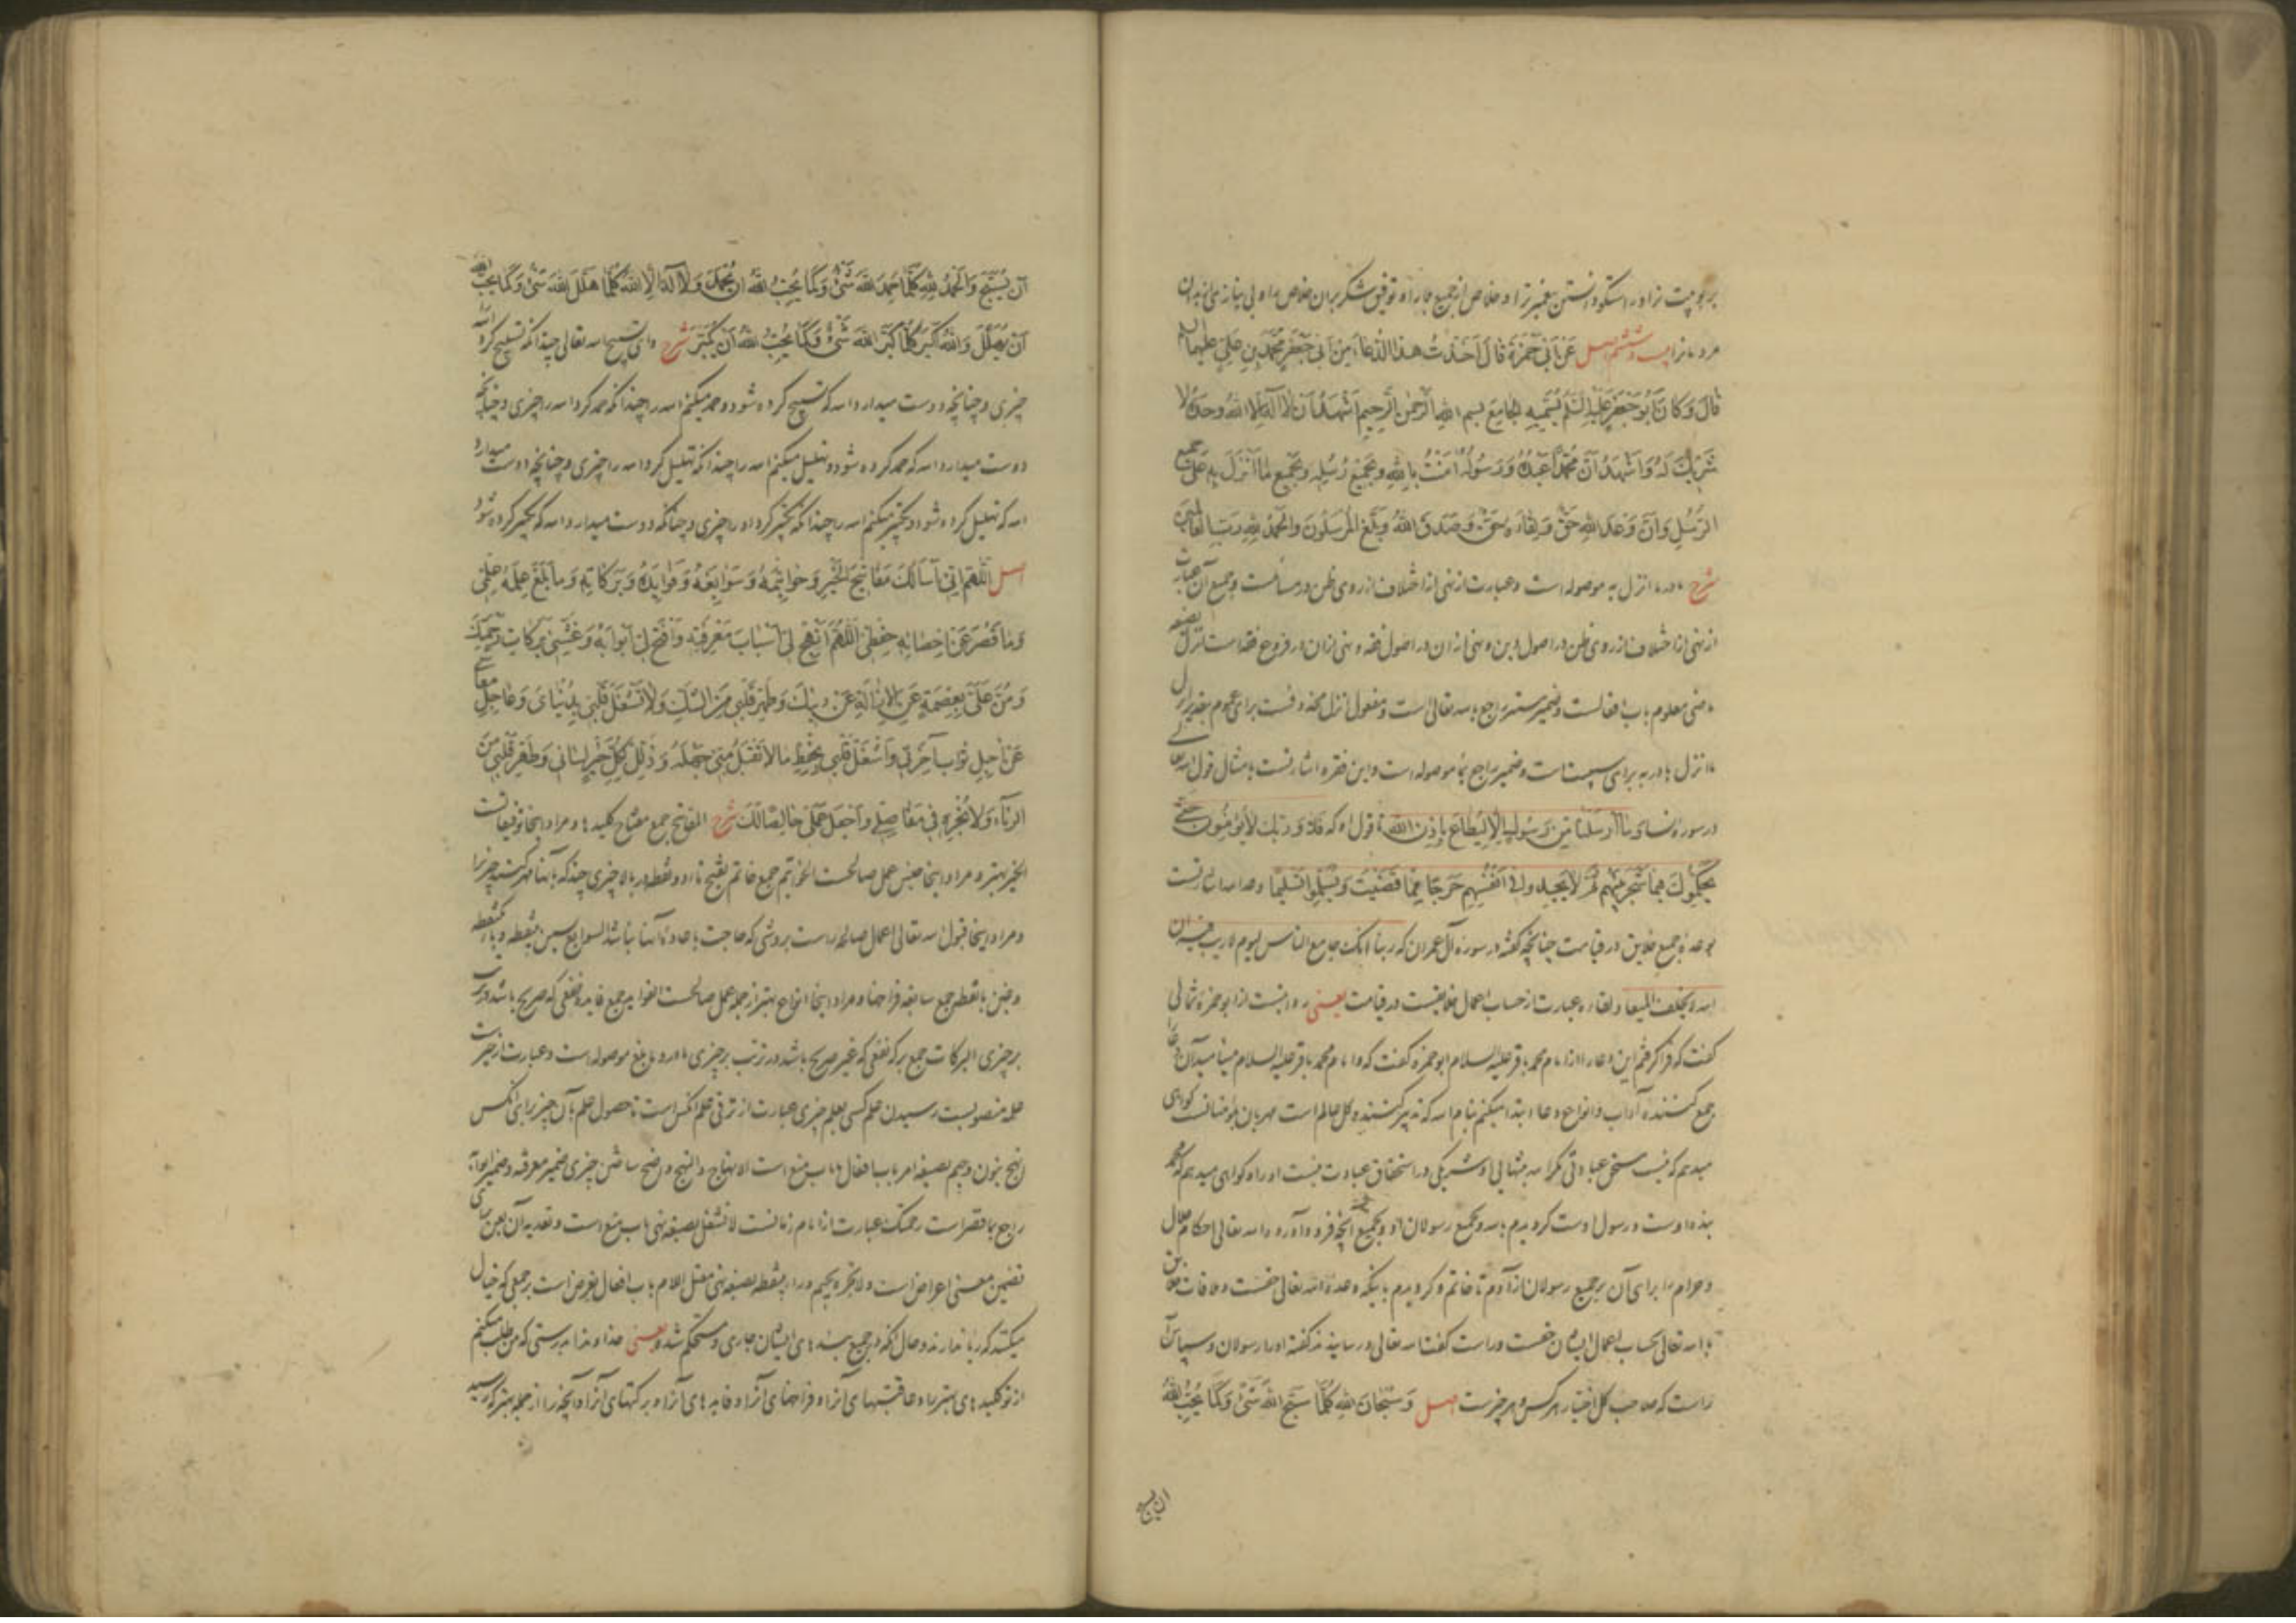 مرد ما نرا بیست و ششم اصل عَنْ اَبی حَمْزَةَ قالَ اَخَذْتُ هذَا الدُّعاءَ مِنْ اَبی جَعْفَرٍ مُحَمَّدِ بْنِ عَلِیٍّ عَلَیْهِمَا
قالَ وَکانَ اَبُو جَعْفَرٍ عَلَیْهِ السَّلامُ یُسَمّیهِ الجامِعَ بسم اللهِ الرَّحْمنِ الرَّحیمِ اَشْهَدُ اَنْ لا اِلهَ اِلاَّ اللهُ وَحْدَهُ لا
شَریکَ لَهُ وَاَشْهَدُ اَنَّ مُحَمَّداً عَبْدُهُ وَرَسُولُهُ امَنْتُ بِاللهِ وَبِجَمیعِ رُسُلِهِ وَبِجَمیعِ ما اَنْزَلَ بِهِ عَلی جمیع
الرُّسُلِ وَاَنَّ وَعْدَ اللهِ حَقٌّ وَلِقاءَهُ حَقٌّ وَصَدَقَ اللهُ وَبَلَّغَ الْمُرْسَلُونَ وَالْحَمْدُ لِلّهِ رَبِّ الْعالَمینَ
شرح ما در ما انزل به موصوله است و عبارت از نهی از اختلاف از روی ظن در مسائلست و جمیع آن عبارت
از نهی از اختلاف از روی ظن در اصول دین و نهی ازان در اصول فقه و نهی ازان در فروع فقه است انزل بصیغه
ماضی معلوم باب افعالست و ضمیر مستتر راجع بالله تعالی است و مفعول انزل محذوفست برای عموم بتقدیر
ما انزل با در به برای سببیت است و ضمیر راجع بما موصوله است و این فقره اشارتست بامثال قول الله تعالی
در سوره نسای ما اَرْسَلْنا مِنْ رَسُولٍ اِلاّ لِیُطاعَ بِاِذْنِ الله تا قول او که فَلا وَرَبِّکَ لا یُؤْمِنُونَ حَتّی
یُحَکِّمُوکَ فیما شَجَرَ بَیْنَهُمْ ثُمَّ لا یَجِدُوا فی اَنْفُسِهِمْ حَرَجاً مِمّا قَضَیْتَ وَیُسَلِّمُوا تَسْلیماً وعد الله اشارتست
بوعده جمیع خلایق در قیامت چنانچه گفته در سوره آل عمران که ربنا انک جامع الناس لیوم لا ریب فیه ان
الله لا یخلف المیعاد ولقاءه عبارت از حساب اعمال خلایقست در قیامت یعنی روایتست از ابو حمزه ثمالی
گفت که فرا گرفتم این دعا را از امام محمد باقر علیه السلام ابو حمزه گفت که و امام محمد باقر علیه السلام مینامید آن دعا
جمع کننده آداب و انواع دعا ابتدا میکنم بنام الله که تدبیر کننده کل عالم است مهربان بمؤمنانست گواهی
میدهم که نیست مستحق عبادتی مگر الله بتنهایی او شریکی در استحقاق عبادت نیست او را و گواهی میدهم که محمد
بنده اوست و رسول اوست گرویدم بالله و بجمیع رسولان او و بجمیع آنچه فرود آورده الله تعالی احکام حلال
و حرام را برای آن بر جمیع رسولان از آدم تا خاتم و گرویدم باینکه وعده الله تعالی حقست و ملاقات خلایق
با الله تعالی بحساب اعمال ایشان حقست و راست گفت الله تعالی و رسانیدند گفته او را رسولان و سپاس
راست که صاحب کل اختیار هر کس و هر چیزست اصل وَسُبْحانَ اللهِ کُلَّما سَبَّحَ اللهَ شَیْءٌ وَکَما یُحِبُّ اللهُ
ان یسبح
اَنْ یُسَبَّحَ وَالْحَمْدُ لِلّهِ کُلَّما حَمِدَ اللهَ شَیْءٌ وَکَما یُحِبُّ اللهُ اَنْ یُحْمَدَ وَلا اِلهَ اِلاَّ اللهُ کُلَّما هَلَّلَ اللهَ شَیْءٌ وَکَما یُحِبُّ الله
اَنْ یُهَلَّلَ وَاللهُ اَکْبَرُ کُلَّما کَبَّرَ اللهَ شَیْءٌ وَکَما یُحِبُّ اللهُ اَنْ یُکَبَّرَ شرح و ای تسبیح الله تعالی چندانکه تسبیح کرد الله
چیزی و چنانچه دوست میدارد الله که تسبیح کرده شود و حمد میکنم الله را چندانکه حمد کرد الله را چیزی و چنانچه
دوست میدارد الله که حمد کرده شود و تهلیل میکنم الله را چندانکه تهلیل کرد الله را چیزی و چنانچه دوست میدارد
الله که تهلیل کرده شود و تکبیر میکنم الله را چندانکه تکبیر کرد او را چیزی و چنانکه دوست میدارد الله که تکبیر کرده شود
اصل اَللّهُمَّ اِنّی اَسْاَلُکَ مَفاتیحَ الْخَیْرِ وَخَواتیمَهُ وَسَوابِغَهُ وَفَوائِدَهُ وَبَرَکاتِهِ وَما بَلَغَ عِلْمَهُ عِلْمی
وَما قَصُرَ عَنْ اِحْصائِهِ حِفْظی اَللّهُمَّ اَنْهِجْ لی اَسْبابَ مَعْرِفَتِهِ وَافْتَحْ لی اَبْوابَهُ وَغَشِّنی بَرَکاتِ رَحْمَتِکَ
وَمُنَّ عَلَیَّ بِعِصْمَةٍ عَنِ الاِزالَةِ عَنْ دینِکَ وَطَهِّرْ قَلْبی مِنَ الشَّکِّ وَلا تَشْغَلْ قَلْبی بِدُنْیایَ وَعاجِلِ معاشی
عَنْ اجِلِ ثَوابِ اخِرَتی وَاشْغَلْ قَلْبی بِحِفْظِ ما لا تَقْبَلُ مِنّی جَهْلَهُ وَذَلِّلْ لِکُلِّ خَیْرٍ لِسانی وَطَهِّرْ قَلْبی مِنَ
الرِّیاءِ وَلا تُجْرِهِ فی مَفاصِلی وَاجْعَلْ عَمَلی خالِصاً لَکَ شرح المفاتیح جمع مفتاح کلیدها و مراد اینجا توفیقاتست
الخیر بهتر و مراد اینجا جنس عمل صالحست الخواتیم جمع خاتم بفتح تا دو نقطه در بالا چیزی چند که بآنها مهر کنند چیز را
و مراد اینجا قبول الله تعالی اعمال صالحه راست بروشی که حاجت باعاده آنها نباشد السوابغ بسین بینقطه و باء یکنقطه
و غین بانقطه جمع سابغه فراخها و مراد اینجا انواع بهتر از جمله عمل صالحست الفواید جمع فایده نفعی که صریح باشد در ترتب
بر چیزی البرکات جمع برکه نفعی که غیر صریح باشد در ترتب بر چیزی ما در و ما بلغ موصوله است و عبارت از خیر است
علمه منصوبست رسیدن علم کسی بعلم چیزی عبارت از ترقی علم آنکس است تا حصول علم بآن چیز برای آنکس
انهج بنون و جیم بصیغه امر باب افعال یا باب منع است الانهاج و النهج واضح ساختن چیزی ضمیر معرفته و ضمیر ابوابه
راجع بما قصر است رحمتک عبارت از امام زمانست لا تشغل بصیغه نهی باب منع است و تعدیه آن بعن برای
تضمین معنی اعراض است و لا تجره بجیم و راء بینقطه بصیغه نهی معتل اللام باب افعال تعریض است بر جمعی که خیال
میکنند که ریا ندارند و حال آنکه در جمیع بندهای ایشان جاری و مستحکم شده یعنی خداوندا بدرستی که من طلب میکنم
از تو کلیدهای بهتر را و عاقبتهای آنرا و فراخهای آنرا و فایدهای آنرا و برکتهای آنرا و آنچه را از جمله بهتر که رسید